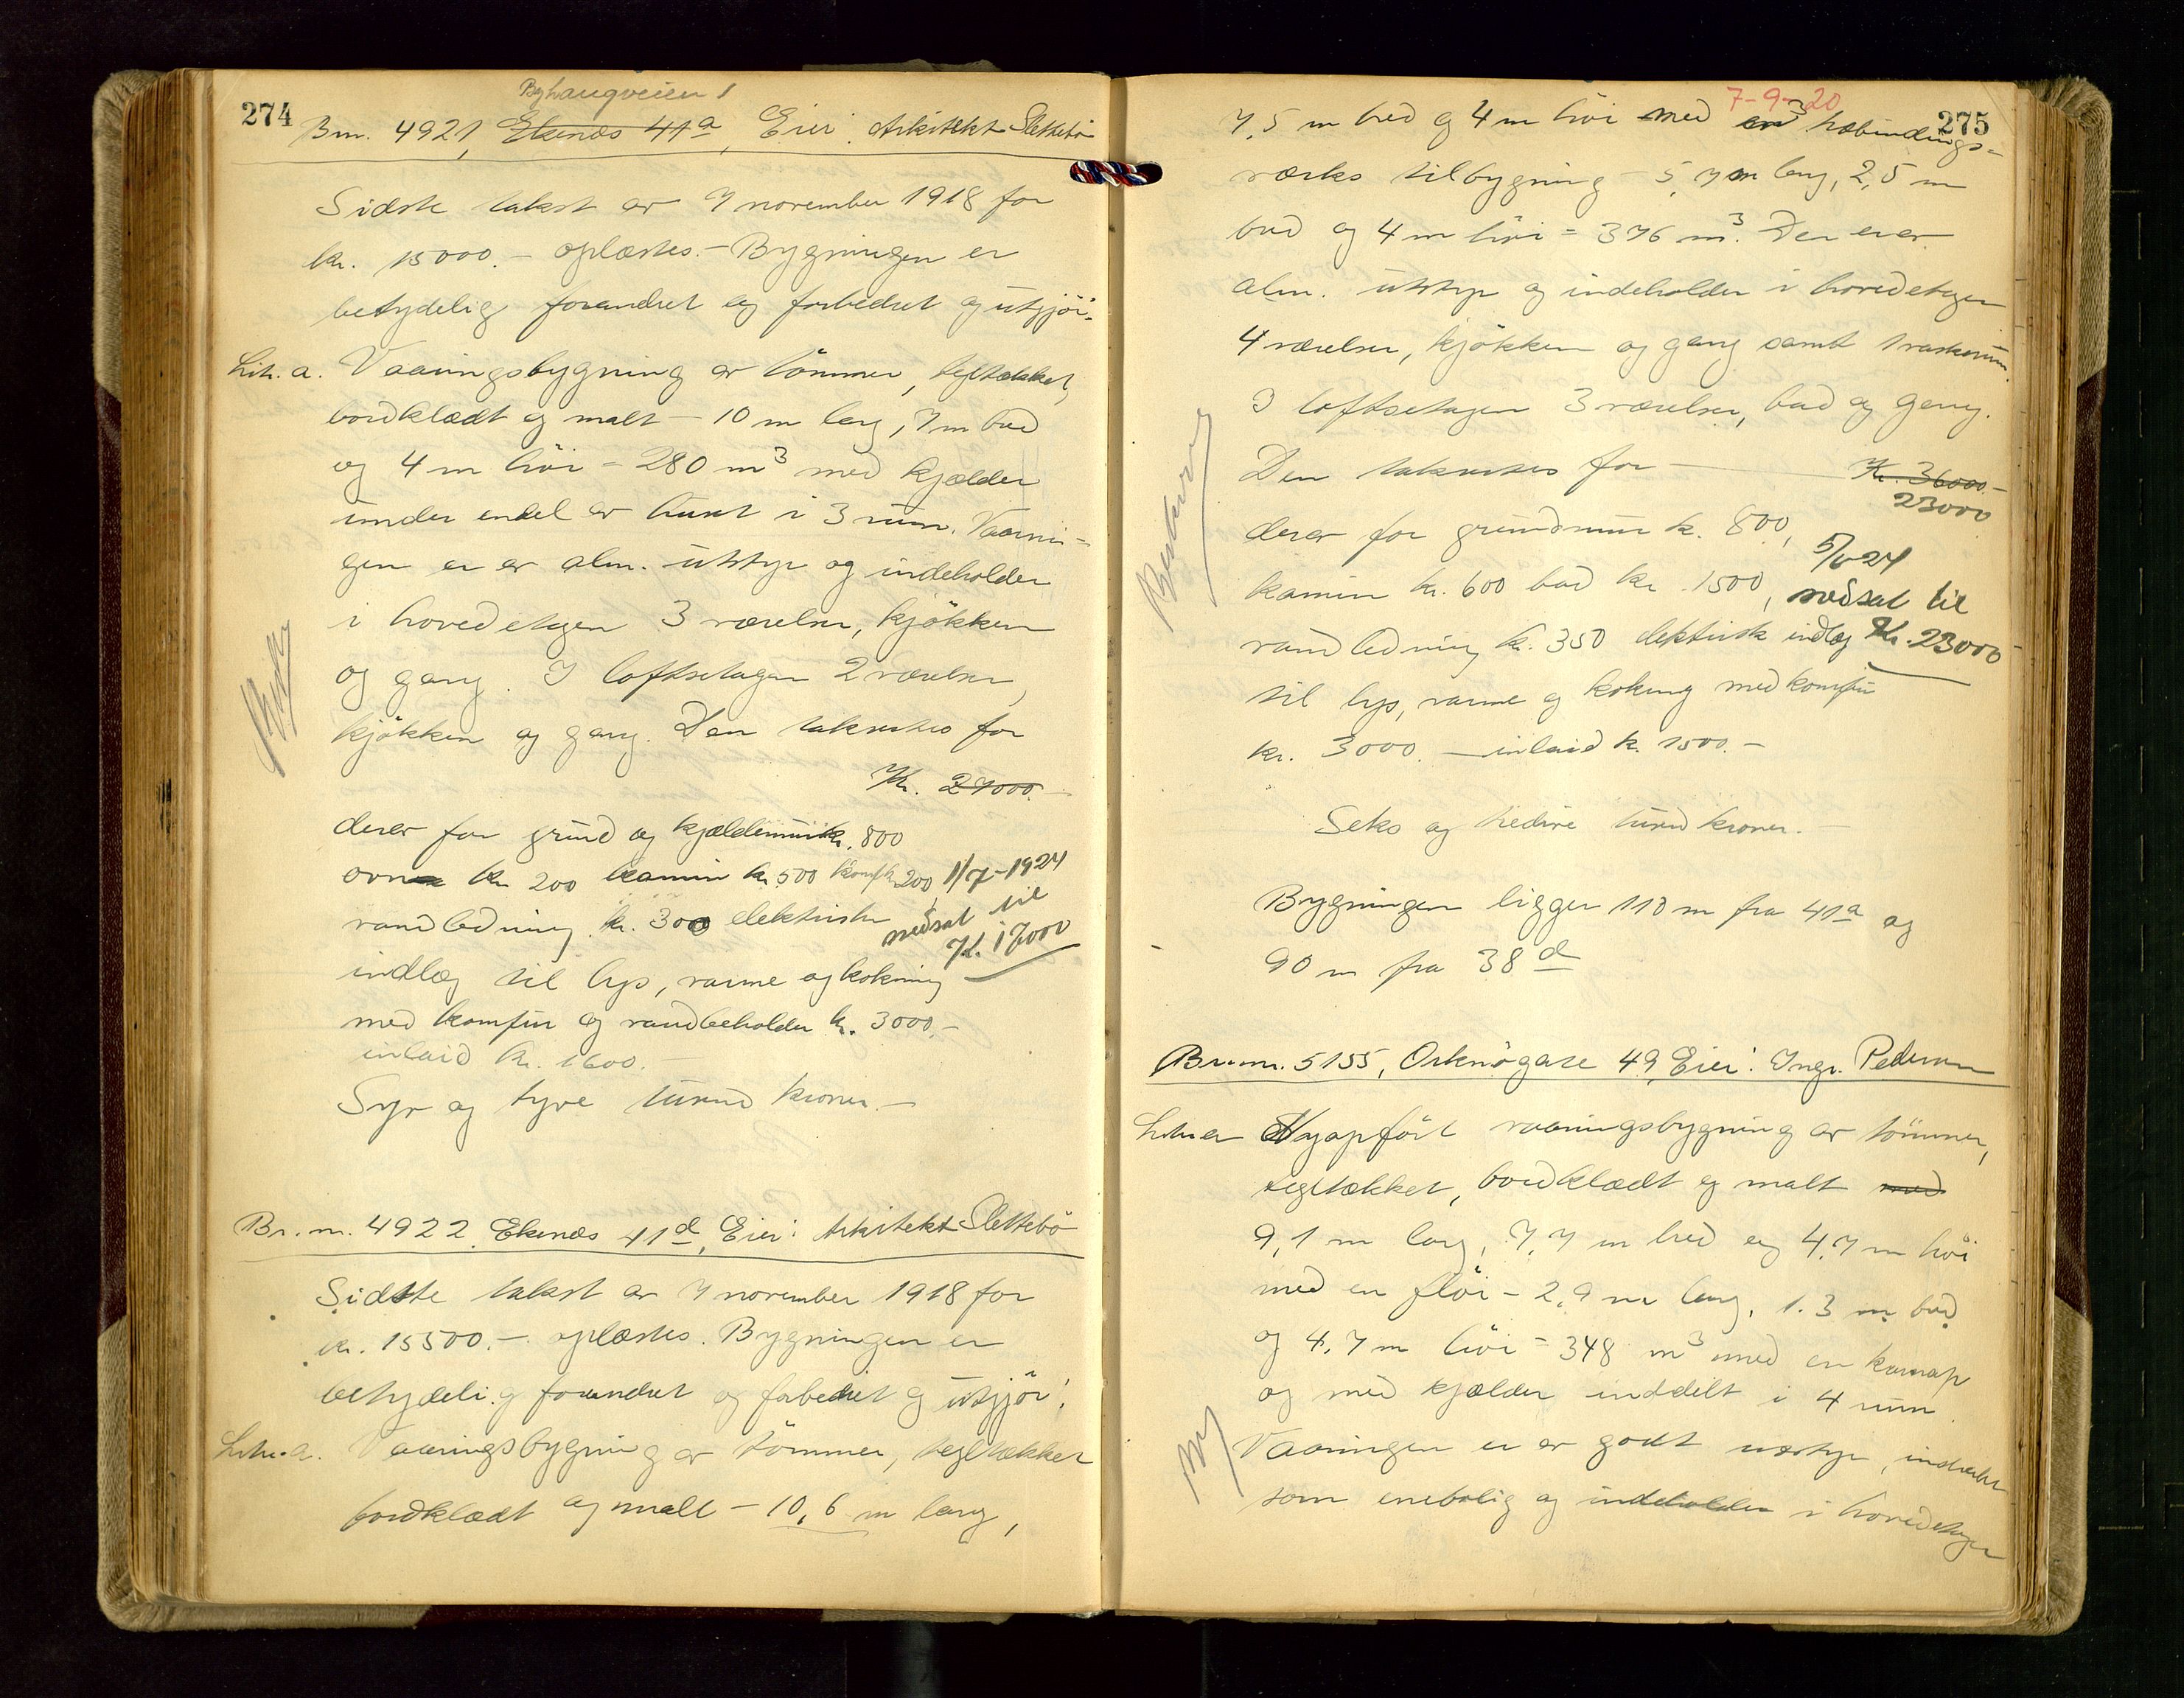 Byhaugveien 1
274
Br.nr. 4921, Ekenæs 41a, Eier: Arkitekt Slettebö
Sidste takst av 7 november 1918 for
kr. 15000.- oplæstes. - Bygningen er
betydelig forandret og forbedret og utgjör:
Litr. a. Vaaningsbygning av tömmer, tegltækket,
bordklædt og malt - 10 m lang, 7 m bred
og 4 m höi = 280 m3 med kjælder
under endel av huset i 3 rum. Vaanin-
gen er av alm. utstyr og indeholder
i hovedetagen 3 værelser, kjökken
og gang. I loftsetagen 2 værelser,
kjökken og gang. Den takseres for
Kr. 27000.-
derav for grund og kjældermur kr. 800
ovn kr. 200 kamin kr. 500 komf. kr. 200,
1/7-1924
vandledning kr. 300 elektriske
nedsat til
Kr. 17000
indlæg til lys, varme og kokning
med komfur og vandbeholder kr. 3000.-
inlaid kr. 1600.-
Syv og tyve tusind kroner.-
Br.nr. 4922, Ekenæs 41d, Eier: Arkitekt Slettebö
Sidste takst av 7 november 1918 for
kr. 15500.- oplæstes. Bygningen er
betydelig forandret og forbedret og utgjör:
Litr. a. Vaaningsbygning av tömmer, tegltækket
bordklædt og malt - 10,6 m lang,
7-9-20
275
7,5 m bred og 4 m höi med en 3 træbindings-
værks tilbygning - 5,7 m lang, 2,5 m
bred og 4 m höi = 376 m3. Den er av
alm. utstyr og indeholder i hovedetagen
4 værelser, kjökken og gang samt 1 vaskerum.
I loftsetagen 3 værelser, bad og gang.
Den takseres for - Kr. 36000.-
23000
derav for grundmur kr. 800,
5/6-24
kamin kr. 600 bad kr. 1500,
nedsat til
vandledning kr. 350 elektrisk indlæg
Kr. 23000
til lys, varme og kokning med komfur
kr. 3000. - inlaid kr. 1500.-
Seks og tredive tusind kroner.-
Bygningen ligger 110 m fra 41a og
90 m fra 38d
Br.nr. 5155, Orknögate 49, Eier: Ingr. Pedersen
Litr. a Nyopfört vaaningsbygning av tömmer,
tegltækket, bordklædt og malt med
9,1 m lang, 7,7 m bred og 4,7 m höi
med en flöi - 2,9 m lang, 1.3 m bred
og 4,7 m höi = 348 m3 med en karnap
og med kjælder inddelt i 4 rum.
Ny
Vaaningen er av godt utstyr, indredet
som enebolig og indeholder i hovedetagen